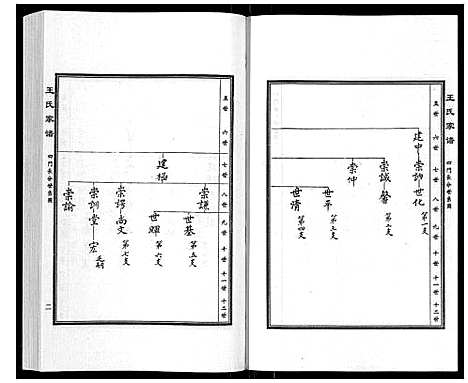 王氏家谱
四門長分世系圖
五世 六世 七世 八世 九世 十世 十一世 十二世
建中 崇訥 世化 第一支
崇誠 馨 第二支
崇仲
世平 第三支
世清 第四支
五世 六世 七世 八世 九世 十世 十一世 十二世
建極
崇謙
世基 第五支
世曜 第六支
崇諤 尚文 第七支
崇訓 堂 宏
崇諭
王氏家谱
四門長分世系圖
二